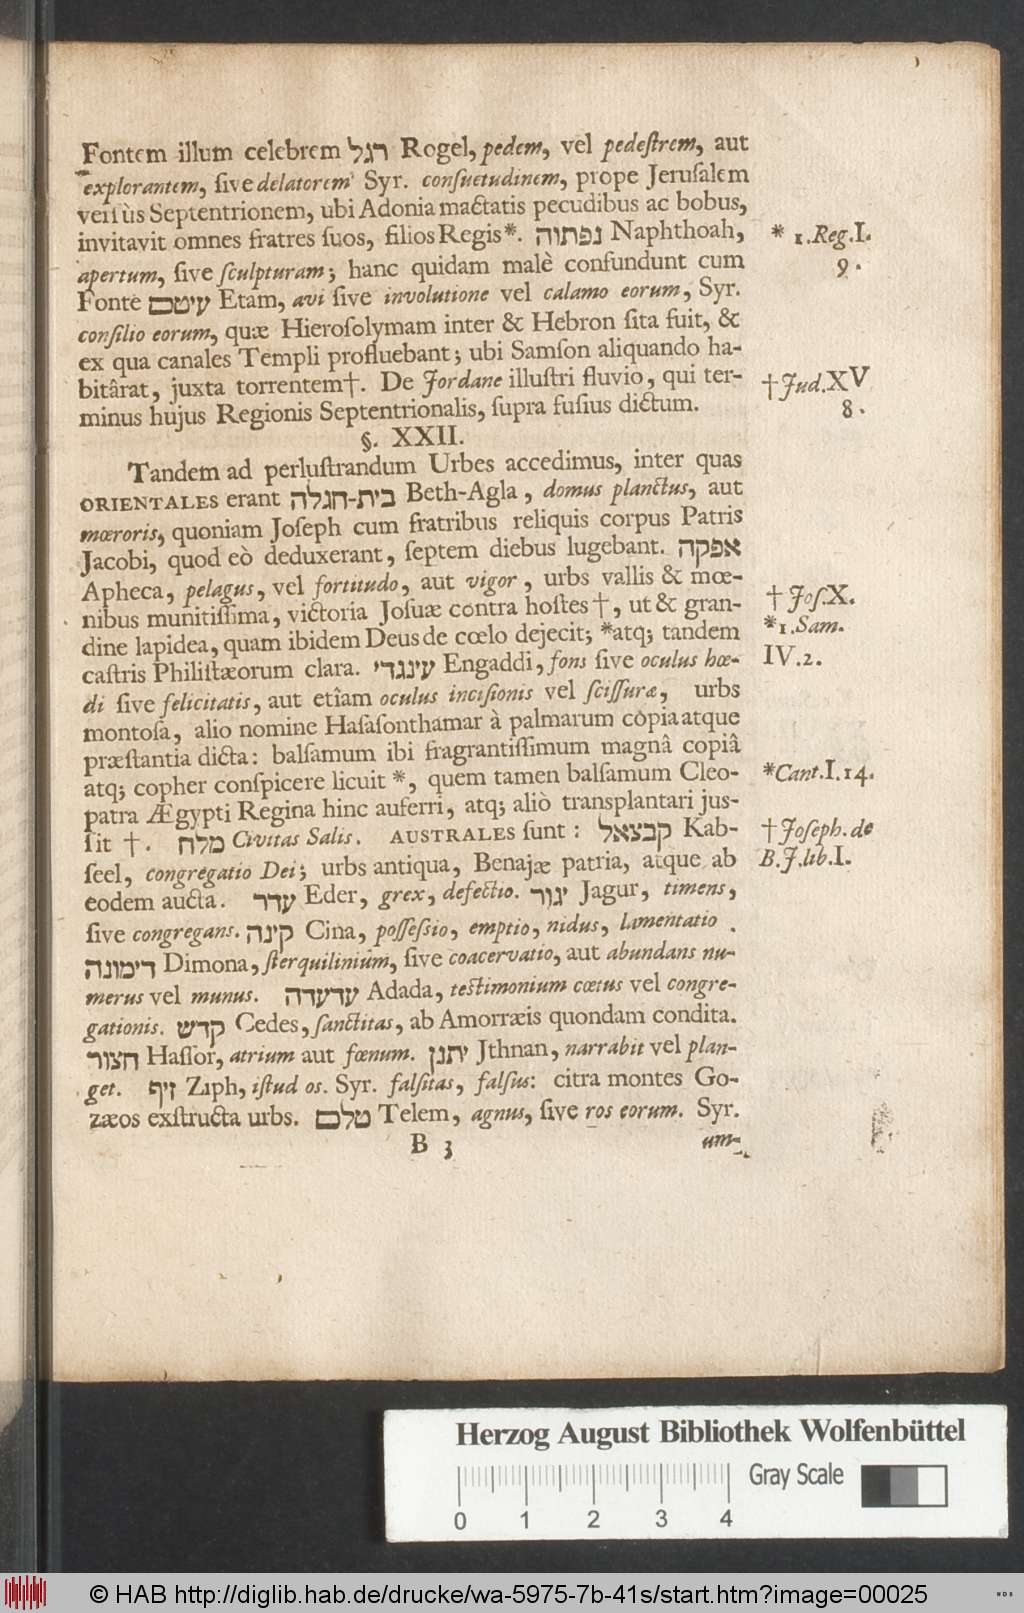 Fontem illum celebrem רגל Rogel, pedem, vel pedeſtrem, aut
explorantem, ſive delatorem Syr. conſuetudinem, prope Jeruſalem
verſùs Septentrionem, ubi Adonia mactatis pecudibus ac bobus,
invitavit omnes fratres ſuos, filios Regis*. נפתוה Naphthoah,
* 1.Reg.I.
9.
apertum, ſive ſculpturam; hanc quidam malè confundunt cum
Fonte עיטם Etam, avi ſive involutione vel calamo eorum, Syr.
conſilio eorum, quæ Hieroſolymam inter & Hebron ſita fuit, &
ex qua canales Templi profluebant; ubi Samſon aliquando ha-
bitârat, juxta torrentem†. De Jordane illuſtri fluvio, qui ter-
† Jud.XV
8.
minus hujus Regionis Septentrionalis, ſupra fuſius dictum.
§. XXII.
Tandem ad perluſtrandum Urbes accedimus, inter quas
ORIENTALES erant בית-חגלה Beth-Agla, domus planctus, aut
mœroris, quoniam Joſeph cum fratribus reliquis corpus Patris
Jacobi, quod eò deduxerant, ſeptem diebus lugebant. אפקה
Apheca, pelagus, vel fortitudo, aut vigor, urbs vallis & mœ-
nibus munitiſſima, victoria Joſuæ contra hoſtes †, ut & gran-
† Joſ.X.
dine lapidea, quam ibidem Deus de cœlo dejecit; *atq; tandem
*1.Sam.
IV.2.
caſtris Philiſtæorum clara. עינגדי Engaddi, fons ſive oculus hœ-
di ſive felicitatis, aut etîam oculus inciſionis vel ſciſſuræ, urbs
montoſa, alio nomine Haſaſonthamar à palmarum copia atque
præſtantia dicta: balſamum ibi fragrantiſſimum magnâ copiâ
atq; copher conſpicere licuit *, quem tamen balſamum Cleo-
*Cant.I.14.
patra Ægypti Regina hinc auferri, atq; aliò transplantari jus-
ſit †. מלח Civitas Salis. AUSTRALES ſunt: קבצאל Kab-
† Joſeph. de
B.J.lib.I.
ſeel, congregatio Dei; urbs antiqua, Benajæ patria, atque ab
eodem aucta. עדר Eder, grex, defectio. יגור Jagur, timens,
ſive congregans. קינה Cina, poſſeſsio, emptio, nidus, lamentatio.
דימונה Dimona, ſterquilinium, ſive coacervatio, aut abundans nu-
merus vel munus. עדעדה Adada, teſtimonium cœtus vel congre-
gationis. קדש Cedes, ſanctitas, ab Amorræis quondam condita.
חצור Haſſor, atrium aut fœnum. יתנן Jthnan, narrabit vel plan-
get. זיף Ziph, iſtud os. Syr. falſitas, falſus: citra montes Go-
zæos exſtructa urbs. טלם Telem, agnus, ſive ros eorum. Syr.
B 3
um-
Herzog August Bibliothek Wolfenbüttel
Gray Scale
0 1 2 3 4
© HAB http://diglib.hab.de/drucke/wa-5975-7b-41s/start.htm?image=00025